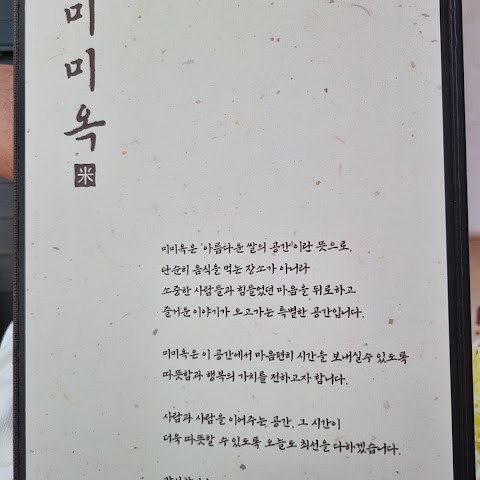 미미옥
米
미미옥은 '아름다운 쌀의 공간'이란 뜻으로,
단순히 음식을 먹는 장소가 아니라
소중한 사람들과 힘들었던 마음을 뒤로하고
즐거운 이야기가 오고가는 특별한 공간입니다.
미미옥은 이 공간에서 마음편히 시간을 보내실수 있도록
따뜻함과 행복의 가치를 전하고자 합니다.
사람과 사람을 이어주는 공간, 그 시간이
더욱 따뜻할 수 있도록 오늘도 최선을 다하겠습니다.